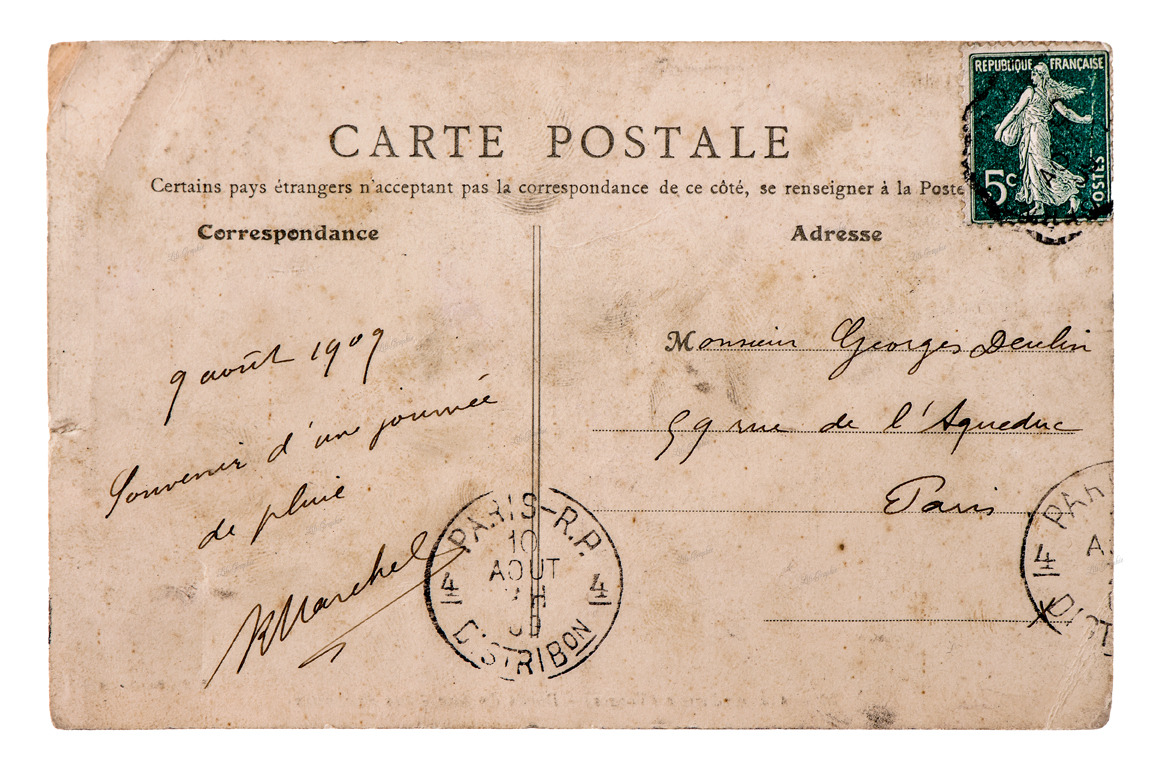 REPUBLIQUE FRANÇAISE
5c
POSTES
CARTE POSTALE
Certains pays étrangers n'acceptant pas la correspondance de ce côté, se renseigner à la Poste
Correspondance
Adresse
9 août 1909
Souvenir d'une journée
de pluie
Monsieur Georges
59 rue de l'Aqueduc
Paris
PARIS-R.P.
10
AOUT
4 4
DISTRIBON
PAR
4